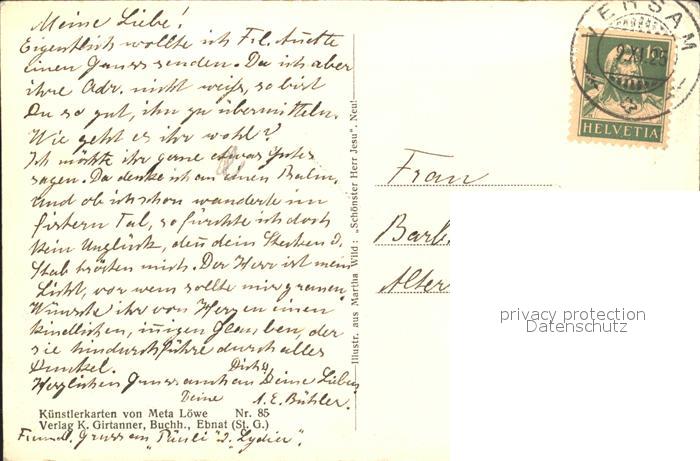 Meine Liebe!
Eigentlich wollte ich Frl. Anette
einen Gruss senden. Da ich aber
ihre Adr. nicht weiß, so bist
Du so gut, ihn zu übermitteln.
Wie geht es ihr wohl?
Ich möchte ihr gerne etwas Gutes
sagen. Da denke ich an einen Psalm,
und ob ich schon wanderte im
finstern Tal, so fürchte ich doch
kein Unglück, denn dein Stecken u.
Stab trösten mich. Der Herr ist mein
Licht, vor wem sollte mir grauen.
Wünsche ihr von Herzen einen
kindlichen, innigen Glauben, der
sie hindurchführe durch alles
Dunkel.
Dich u.
Herzlichen Gruss an Deine Lieben
Deine A. E. Bühler.
Künstlerkarten von Meta Löwe Nr. 85
Verlag K. Girtanner, Buchh., Ebnat (St. G.)
Freundl. Gruss an "Päuli" u. "Lydia".
Illustr. aus Martha Wild: „Schönster Herr Jesu". Neu!
VERSAM
HELVETIA
10
Frau
Barb.
Alter
privacy protection
Datenschutz